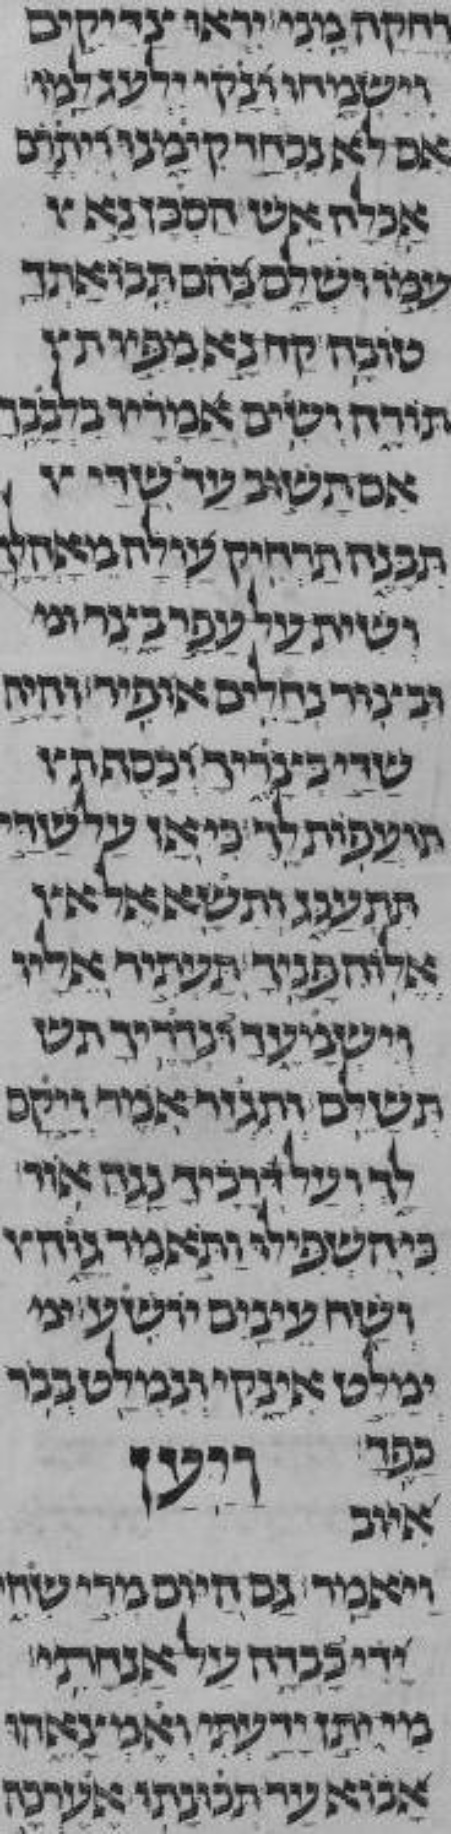 רחקה מני׃ יראו צדיקים
וישמחו ונקי ילעג למו׃
אם לא נכחד קימנו ויתרם
אכלה אש׃ הסכן נא
עמו ושלם בהם תבואתך
טובה׃ קח נא מפיו ת
תורה ושים אמריו בלבבך׃
אם תשוב עד שדי
תבנה תרחיק עולה מאהלך׃
ושית על עפר בצר ומ
ובצור נחלים אופיר׃ והיה
שדי בצריך וכסף ת
תועפות לך׃ כי אז על שדי
תתענג ותשא אל א
אלוה פניך׃ תעתיר אליו
וישמעך ונדריך תש
תשלם׃ ותגזר אמר ויקם
לך ועל דרכיך נגה אור׃
כי השפילו ותאמר גוה
ושח עינים יושע׃ ימ
ימלט אי נקי ונמלט בבר
כפיך׃ ויען
איוב
ויאמר׃ גם היום מרי שחי
ידי כבדה על אנחתי׃
מי יתן ידעתי ואמצאהו
אבוא עד תכונתו׃ אערכה